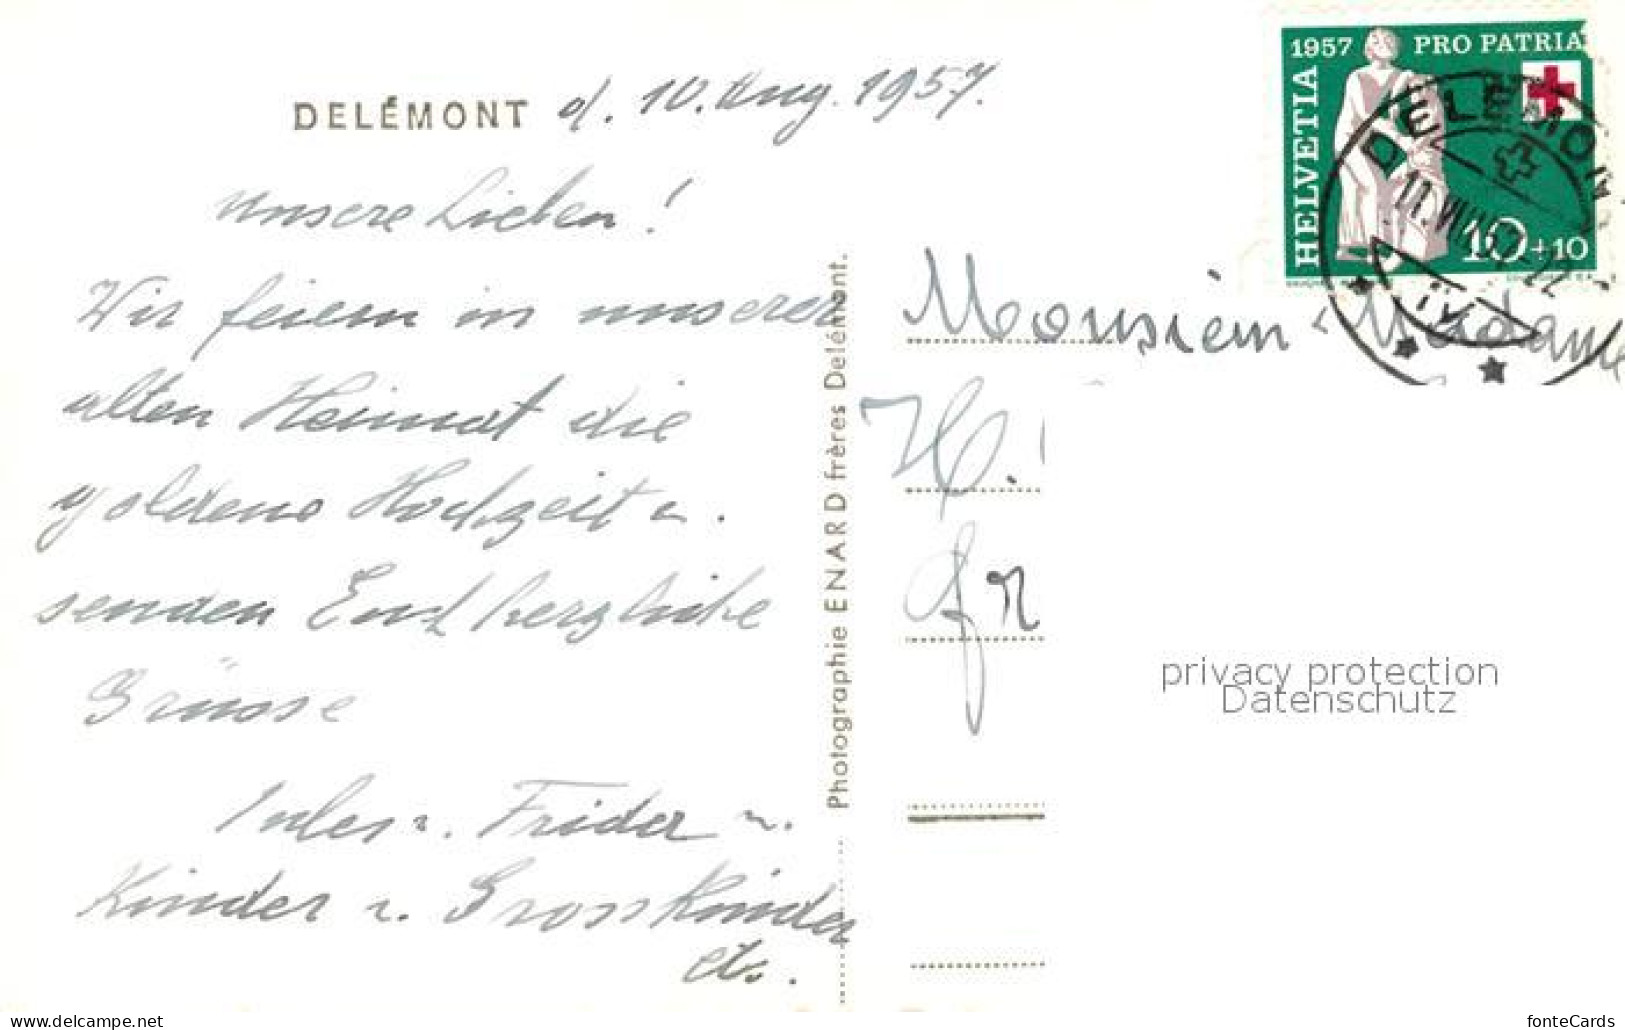 DELÉMONT d. 10. Aug. 1957.
Unsere Lieben!
Wir feiern in unserer
alten Heimat die
goldene Hochzeit u.
senden Euch herzliche
Grüsse
u. Frider u.
Kinder u. Grosskinder
etc.
Photographie ENARD frères Delémont.
1957 PRO PATRIA
HELVETIA
10+10
DELÉMONT
11.VIII.57.-22
Monsieur Madame
H.
privacy protection
Datenschutz
www.delcampe.net
fonteCards